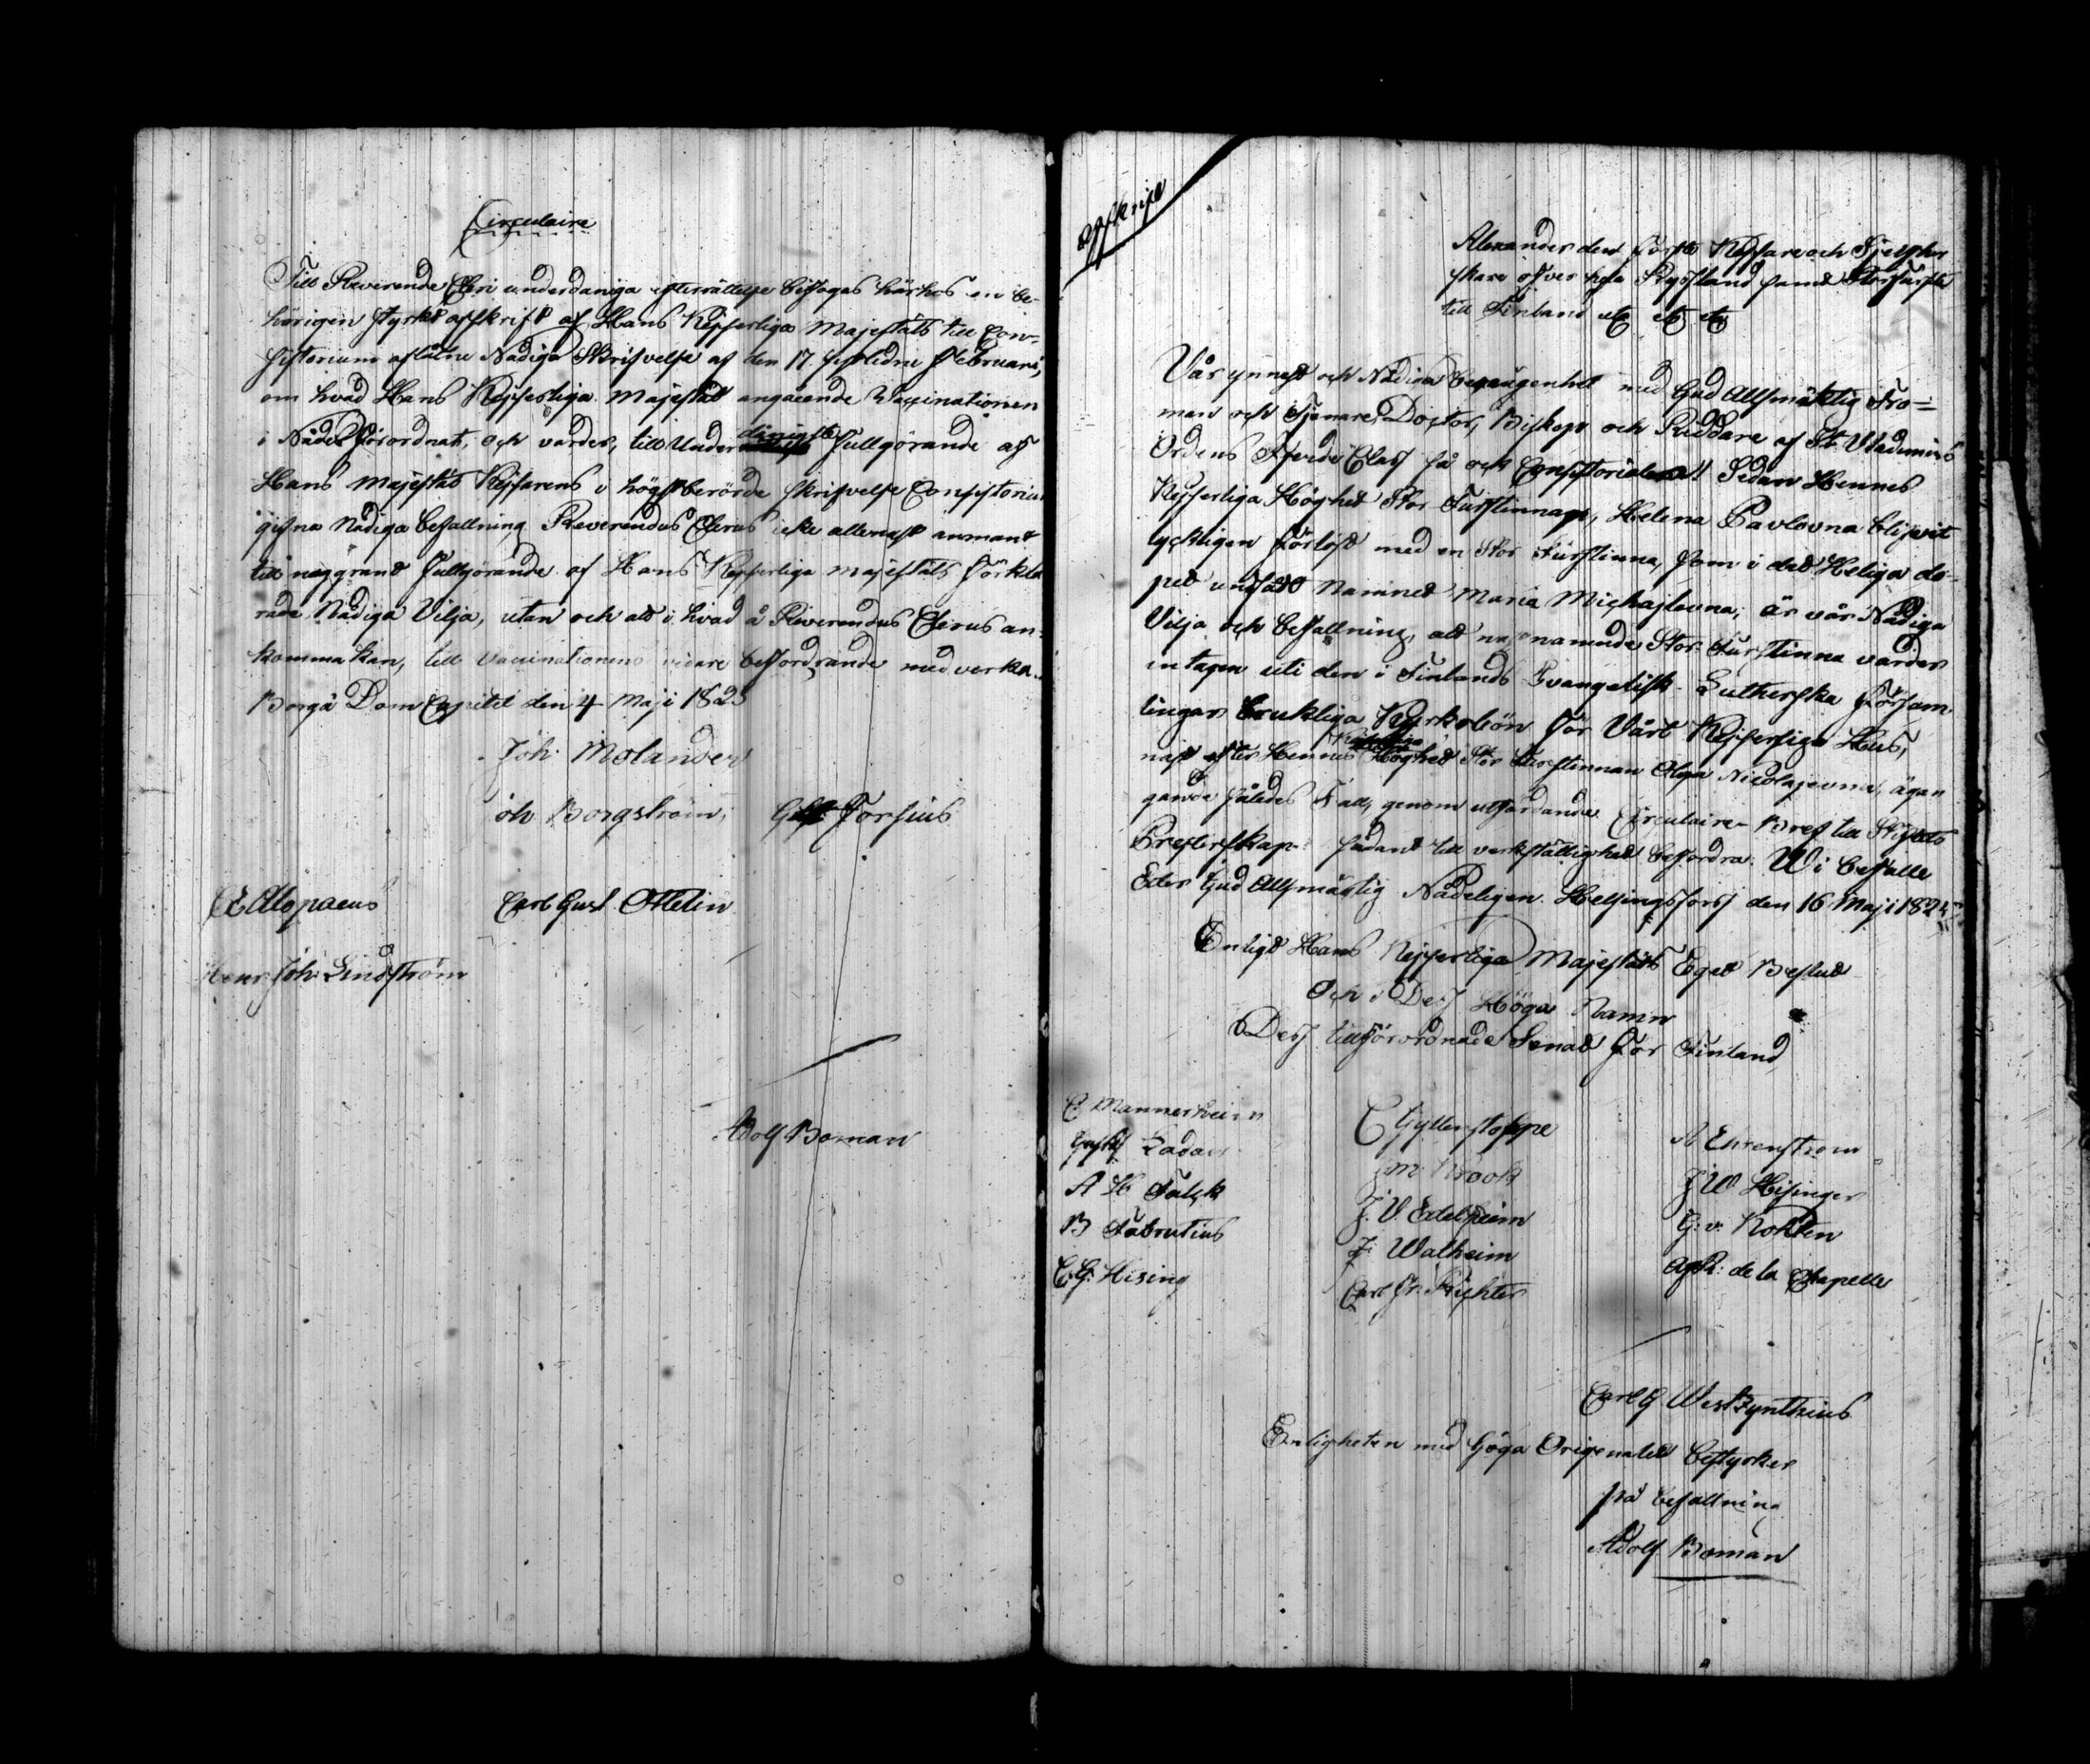 Circulaire
Till Reverende Cleri underdåniga efterrättelse bifogas härhos en be-
hörigen styrkt afskrift af Hans Kejserliga Majestäts till Con-
sistorium aflåtne Nådiga Skrifvelse af den 17 sistledne Februarii,
om hvad Hans Kejserliga Majestät angående Vaccinationen
i Nåder förordnat, och varder, till Underdånigste fullgörande af
Hans Majestäts Kejsarens i högstberörde skrifvelse Consistorium
gifna Nådiga befallning Reverendus Clerus icke allenast anmant
till noggrant fullgörande af Hans Kejserliga Majestäts förkla
rade Nådiga Vilja, utan och att i hvad å Reverendus Clerus an-
komma kan, till Vaccinationens vidare befordrande medverka.
Borgå Dom Capitel den 4 Maji 1825
Joh. Molander
Joh Borgström, Forsius
Alopaeus Carl Gust Ottelin
Henr. Joh: Lindström
Adolf Boman
Afskrift
Alexander den Förste Kejsare och Sjelfher
skare öfver hela Ryssland samt Storfurste
till Finland etc etc etc
Vår ynnest och Nådiga benägenhet med Gud Allsmäktig Tro-
man och Tjenare, Doctor, Biskop och Riddare af St. Vladimirs
Ordens Fjerde Class så ock Consistoriales! Sedan Hennes
Kejserliga Höghet Stor Furstinnan, Helena Pavlovna blifvit
lyckligen förlöst med en Stor Furstinna, som i det Heliga do-
pet undfått Namnet Maria Michajlovna; är vår Nådiga
Vilja och befallning, att nu namnde Stor Furstinna varder
intagen uti den i Finlands Evangelisk Lutherska Försam
lingar brukliga Kyrkobön för Vårt Kejserliga Hus,
näst efter Hennes Höghet Stor Furstinnan Olga Nicolajevna, ägan
gande således I att, genom utfärdande Circulaire Bref till Stiftets
Presterskap sådant till verkställighet befordra. Wi befalle
Eder Gud Allsmäktig Nådeligen. Helsingfors den 16 Maji 1825
Enligt Hans Kejserliga Majestäts Eget Beslut
Och i Dess Höga Namn
Dess tillförordnade Senat för Finland
C Mannerheim C Gyllenstolpe A Ehrenstrom
Gust Ladau J M Krook J W Hisinger
A H Falck J. V. Edelheim G: v. Kothen
B Fabrutius J: Walheim de la Chapelle
C. G. Hising Carl Fr. Richter
Carl G Westzynthius
Enligheten med höga Originalet bestyrker
på befallning
Adolf Boman